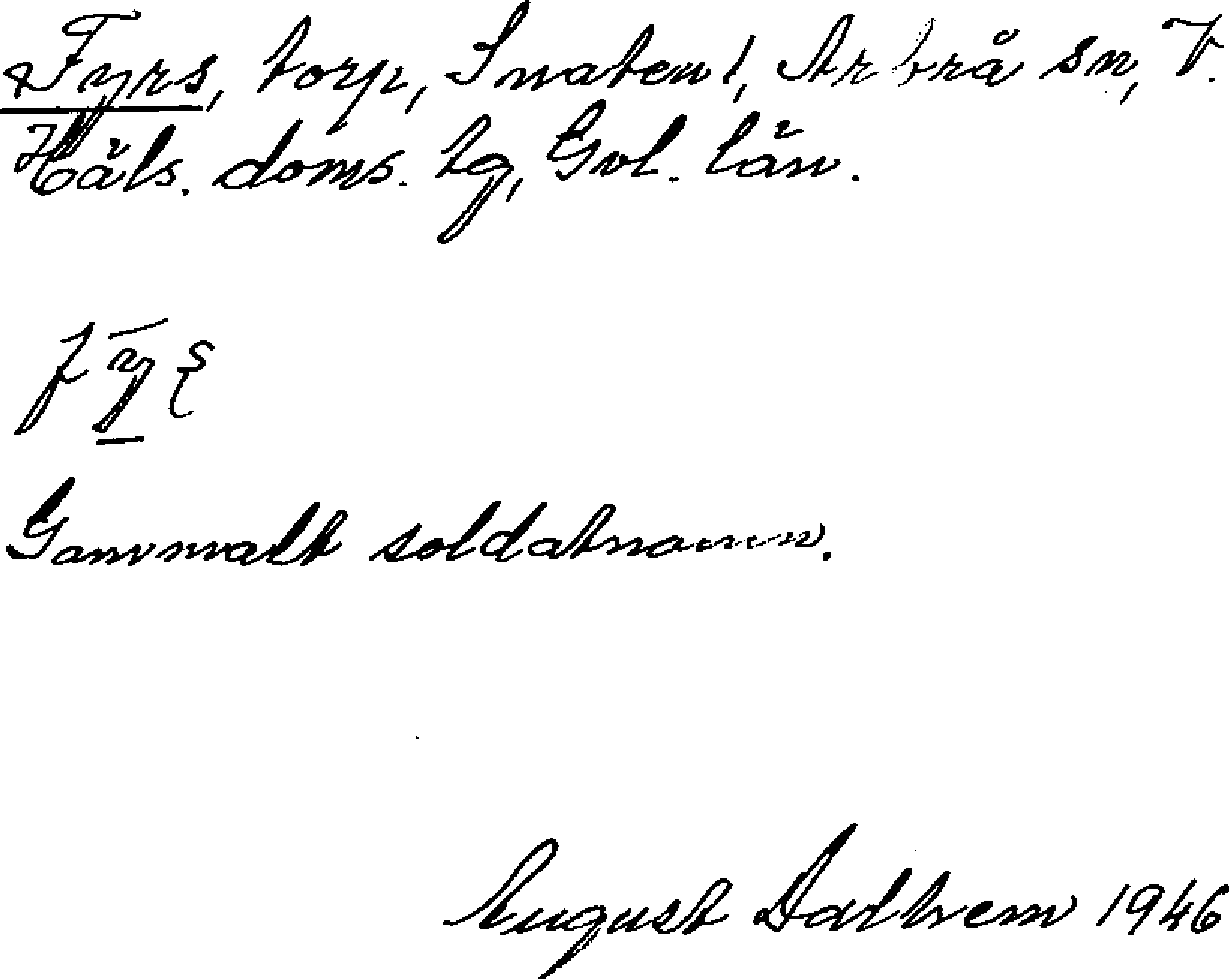 Fyrs, torp, Snaten 1, Arbrå sn, V.
Häls. doms. tg, Gvl. län.
Gammalt soldatnamn.
August Dalhem 1946